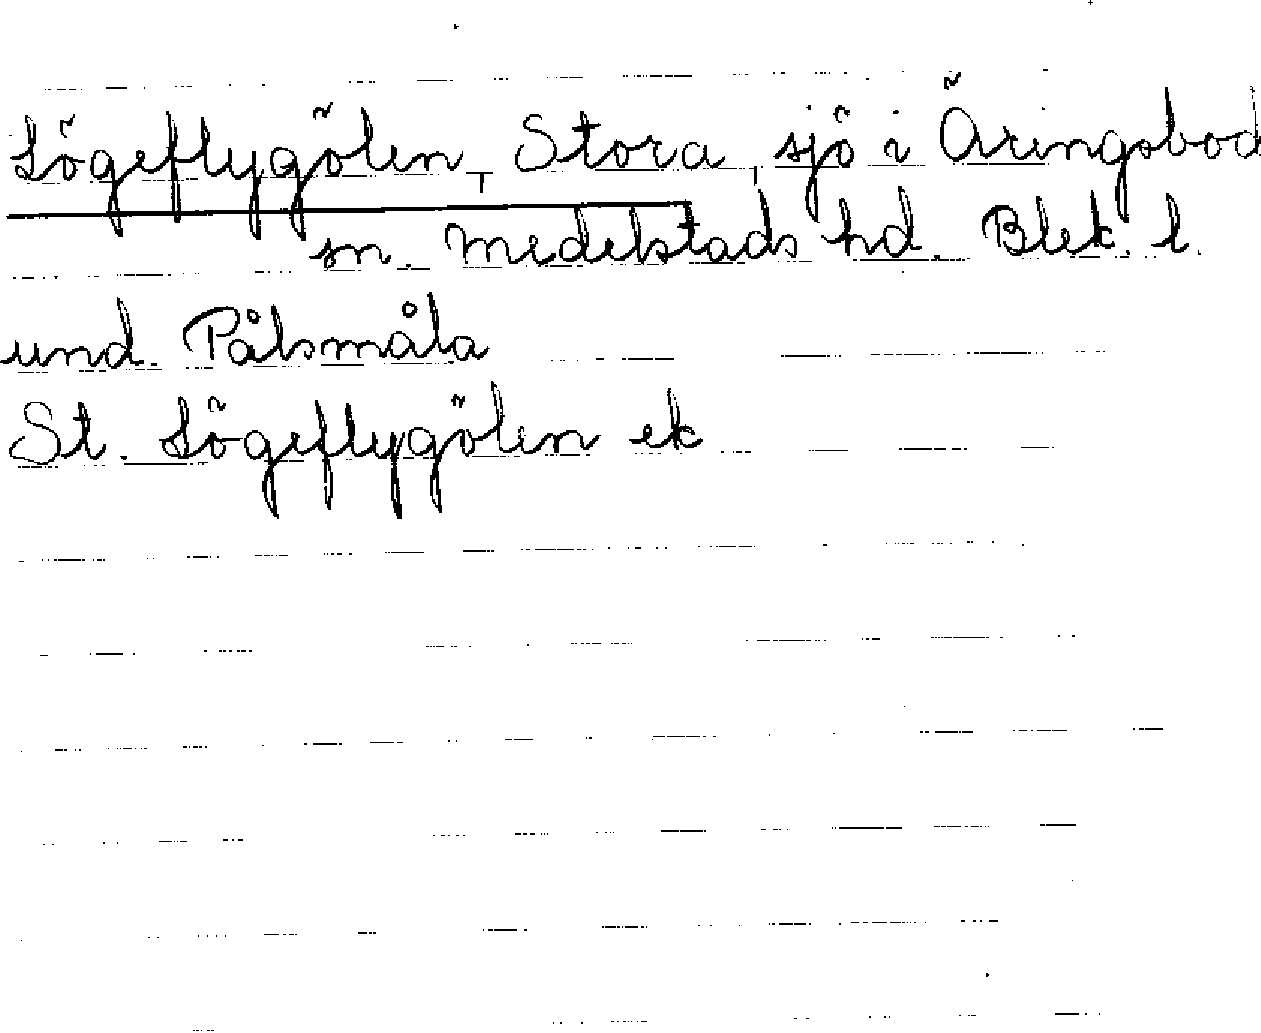 Lögeflygölen, Stora, sjö i Äringsbod
sn. Medelstads hd. Blek. l.
und. Pålsmåla
St. Lögeflygölen ek